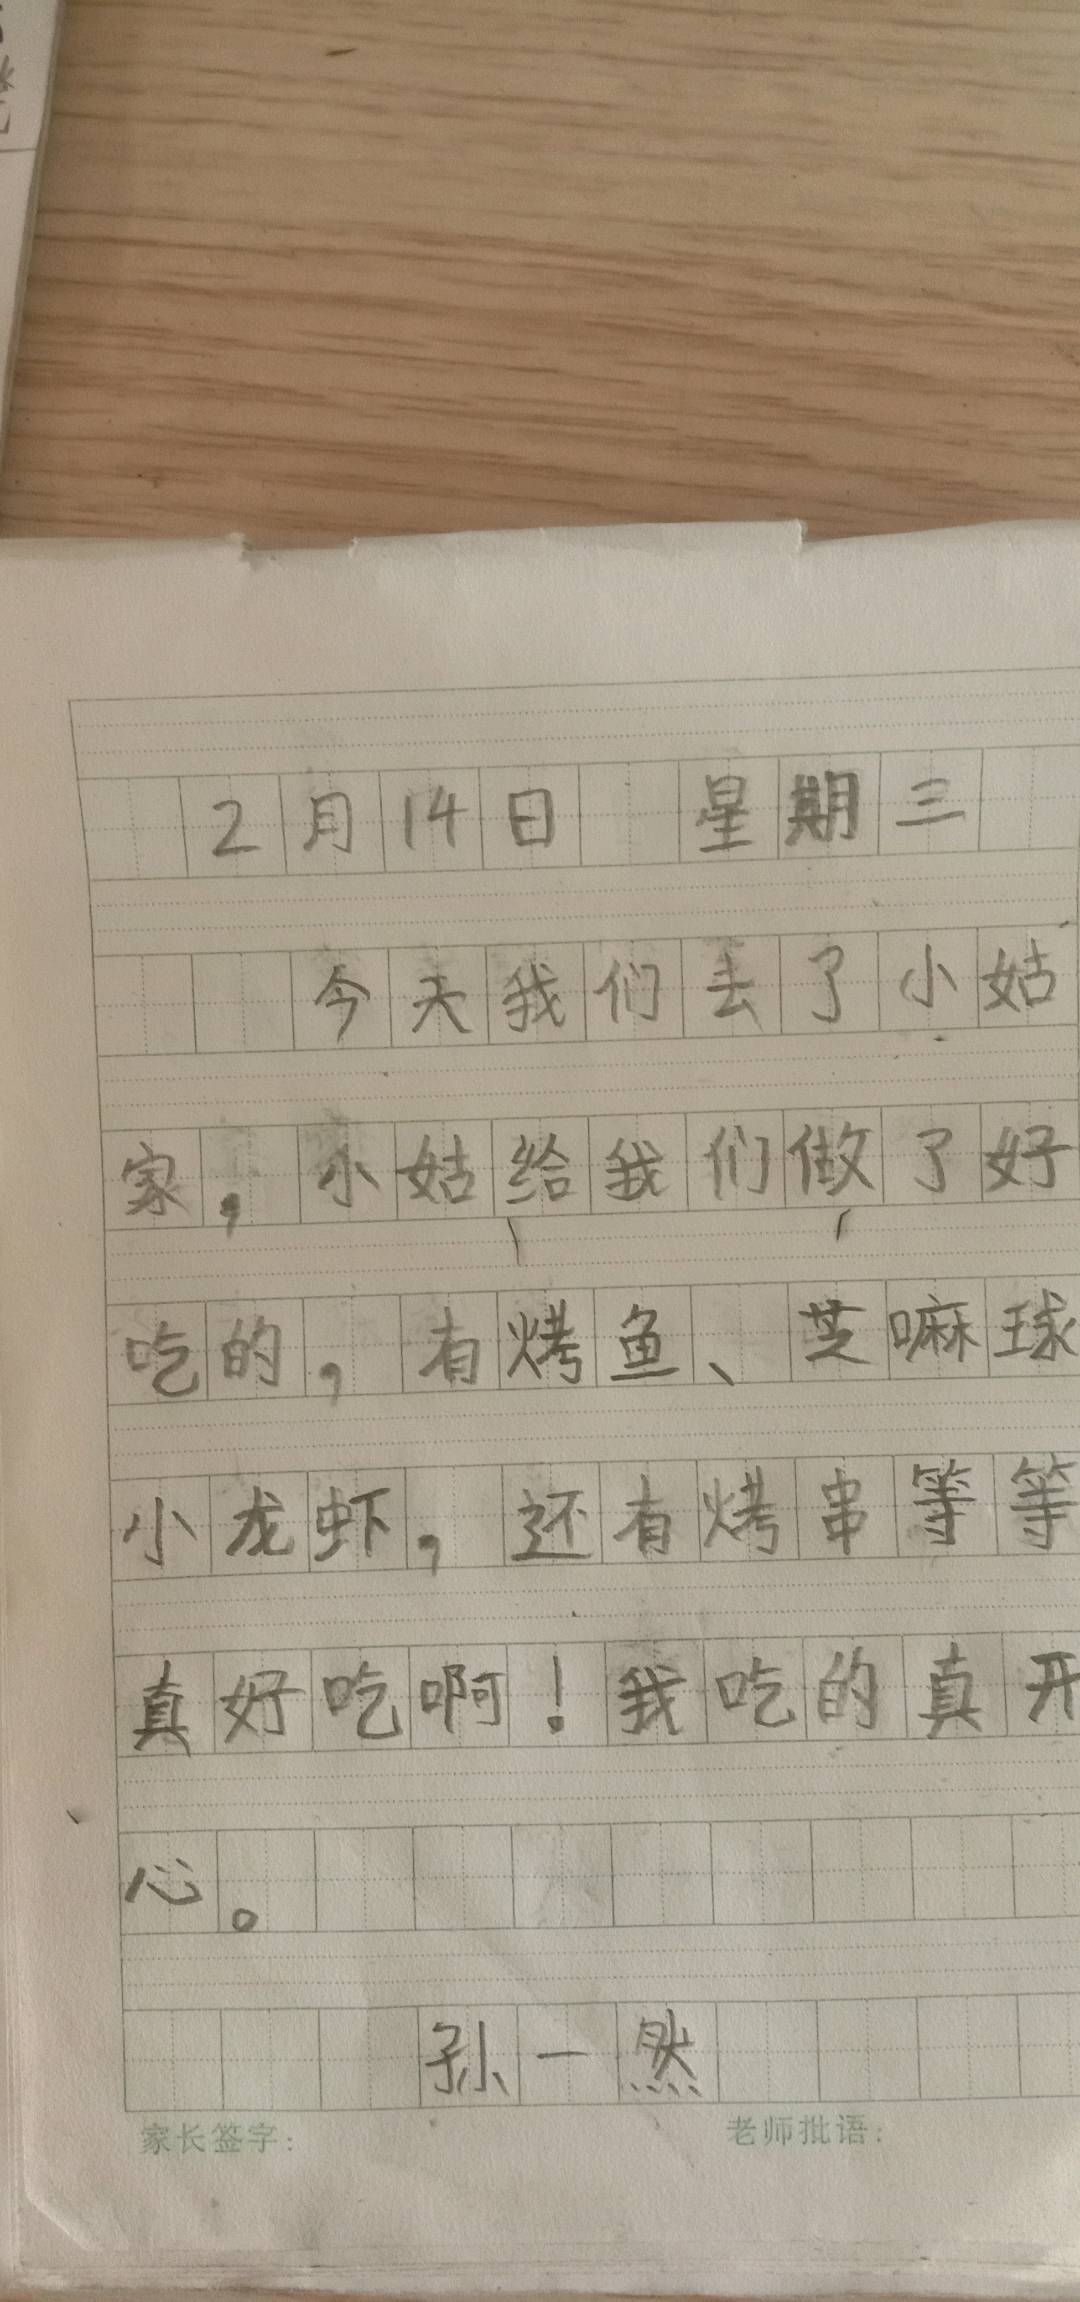 2月14日 星期三
今天我们去了小姑
家，小姑给我们做了好
吃的，有烤鱼、芝嘛球
小龙虾，还有烤串等等
真好吃啊！我吃的真开
心。
孙一然
家长签字：
老师批语：